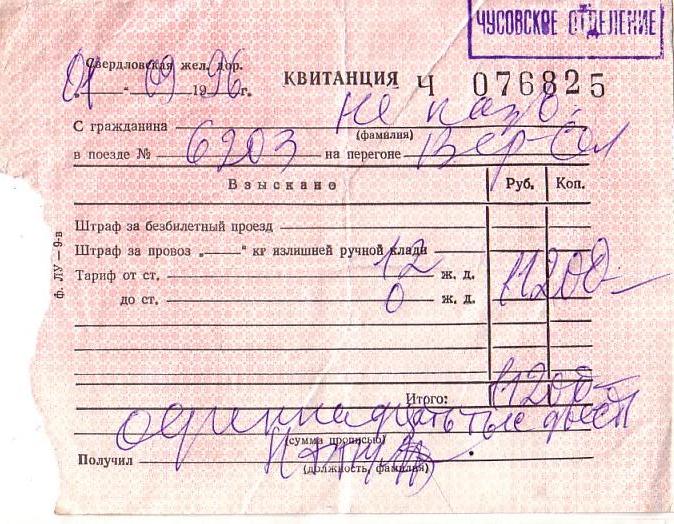 ЧУСОВСКОЕ ОТДЕЛЕНИЕ
Свердловская жел. дор.
01 - 09 1996 г.
КВИТАНЦИЯ Ч 076825
С гражданина Не назв.
(фамилия)
в поезде № 6203 на перегоне Вер-Сол
Взыскано Руб. Коп.
Штраф за безбилетный проезд
Штраф за провоз „—" кг излишней ручной клади
Тариф от ст. 12 ж. д. 11200-
до ст. 0 ж. д.
Итого: 11200-
одиннадцать тыс двест
(сумма прописью)
Получил
(должность, фамилия)
ф. ЛУ — 9-в